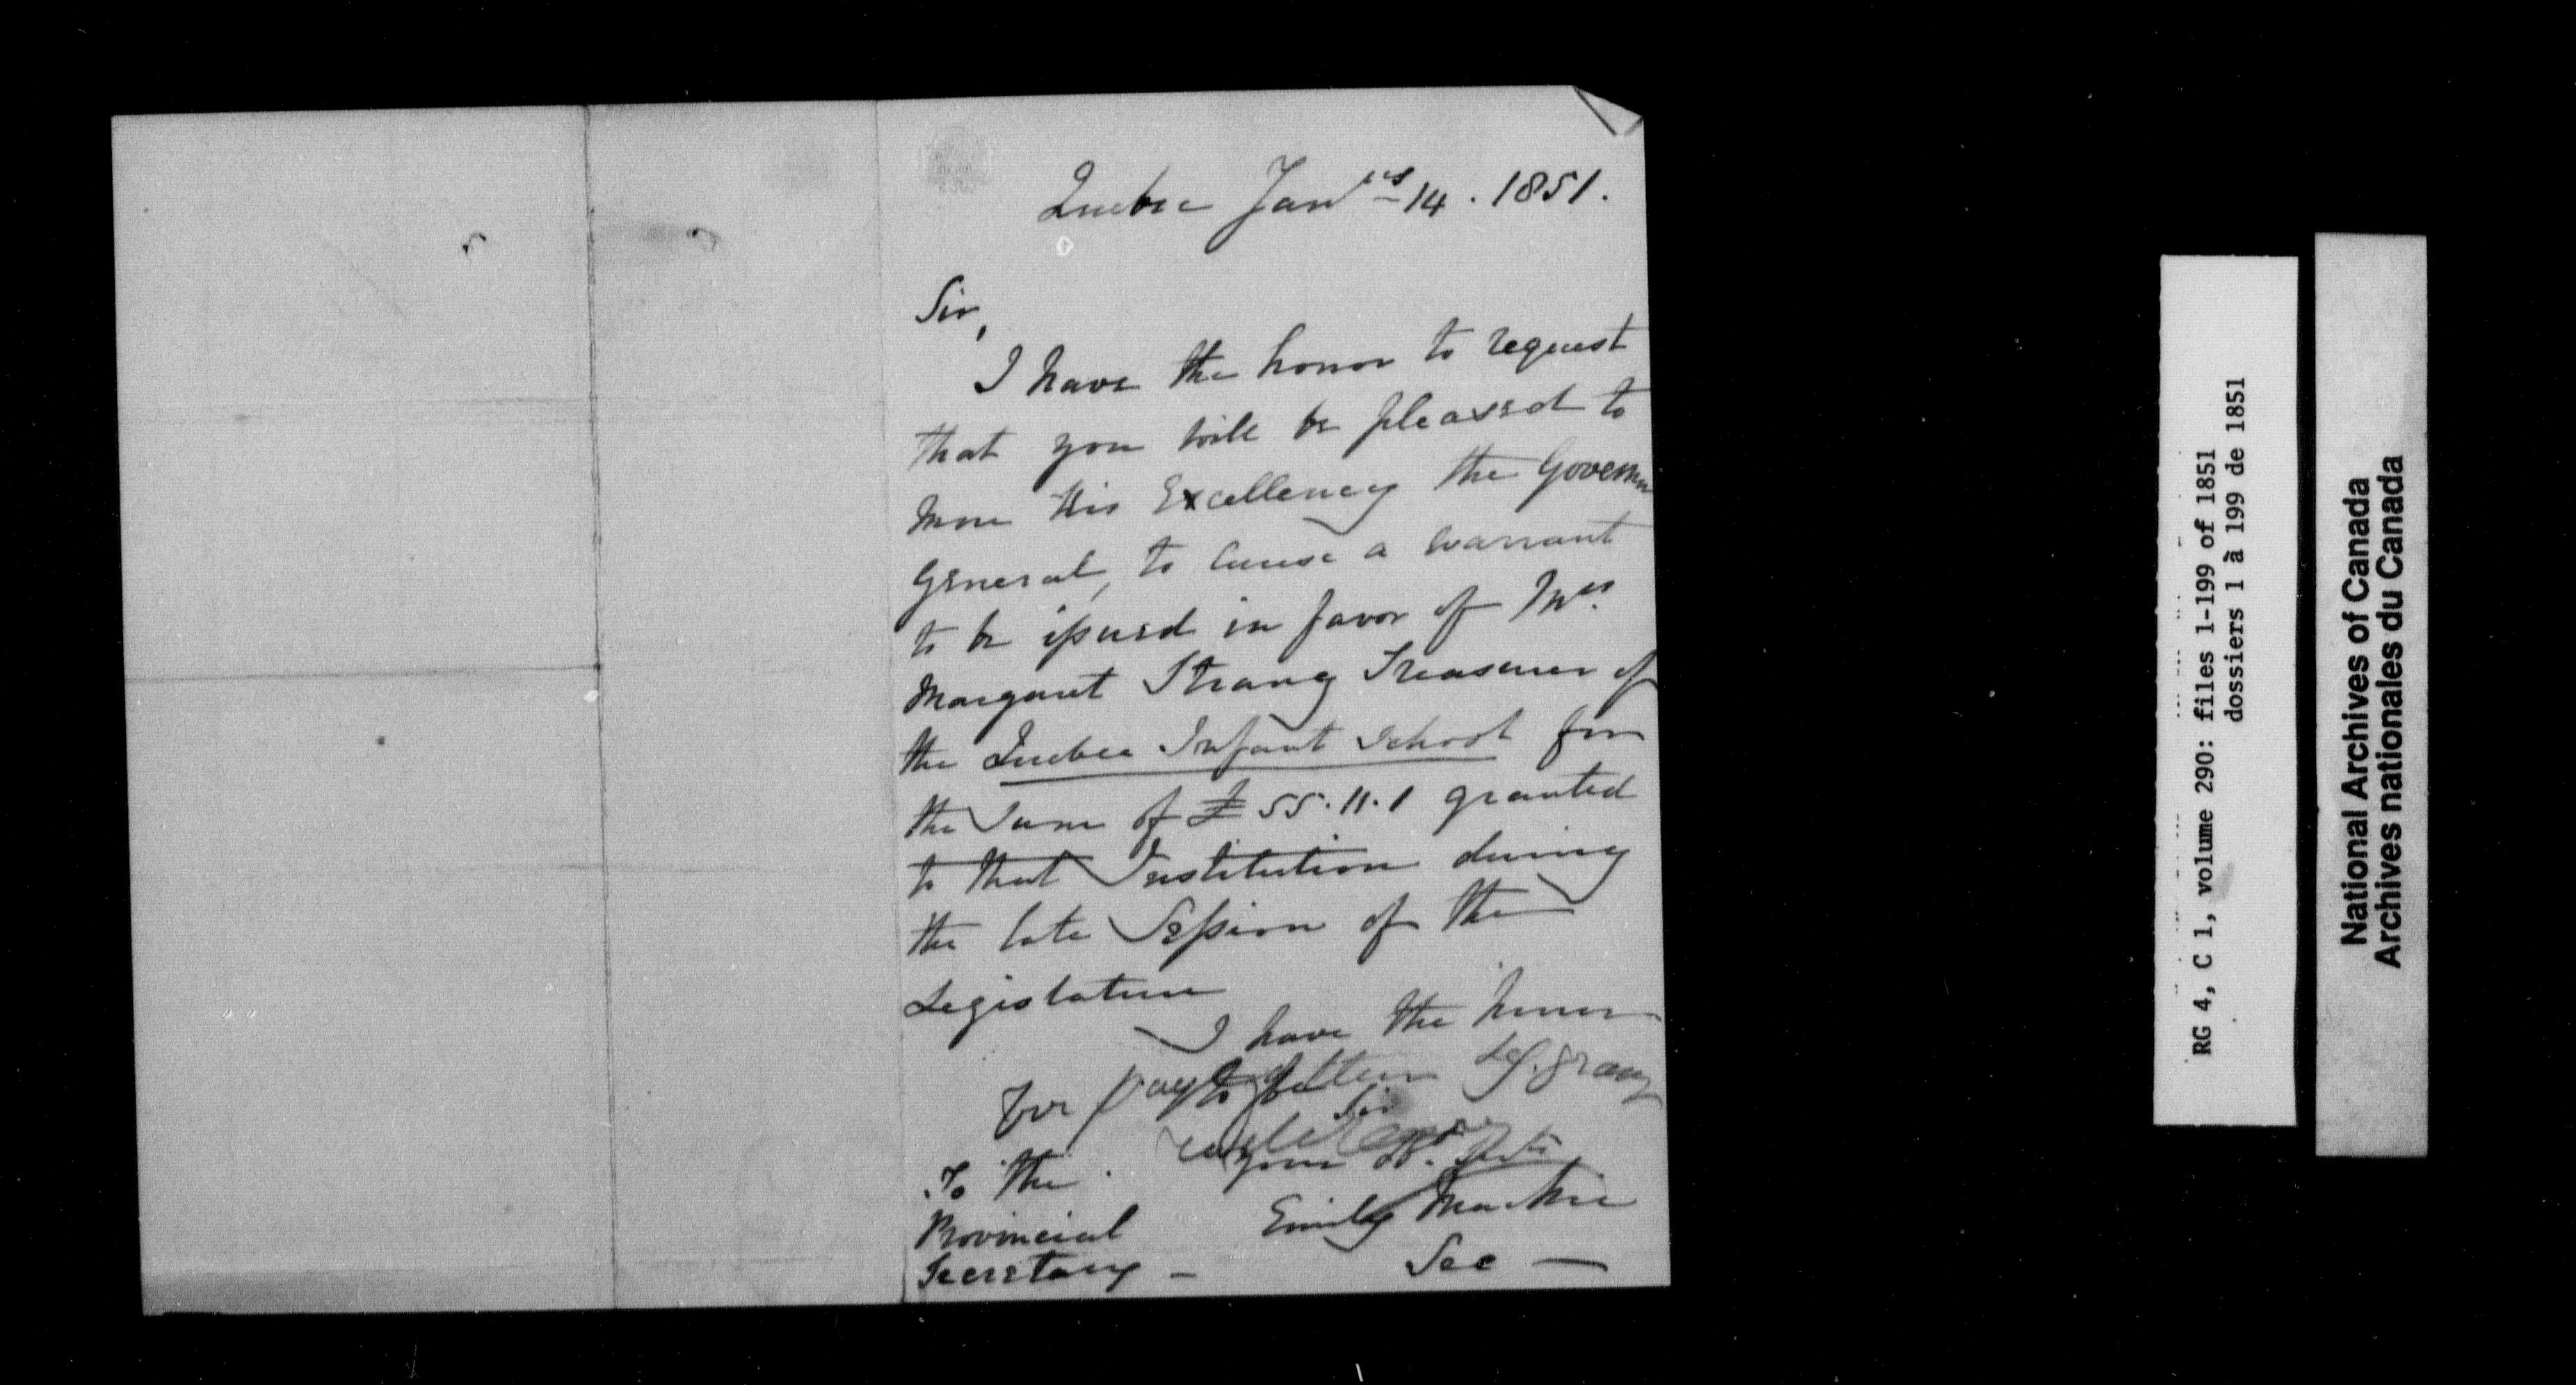 Quebec Jan^ry 14. 1851.
Sir,
I have the honor to request
that you will be pleased to
move His Excellency the Governor
General, to cause a warrant
to be issued in favor of M^rs.
Margaret Strang Treasurer of
the Quebec Infant School for
the Sum of £55.11.1 granted
to that Institution during
the late Session of the
Legislature
I have the honor
for pay
Sir
To the your
Provincial Emily Mackie
Secretary - Sec -
RG 4, C 1, volume 290: files 1-199 of 1851
dossiers 1 à 199 de 1851
National Archives of Canada
Archives nationales du Canada